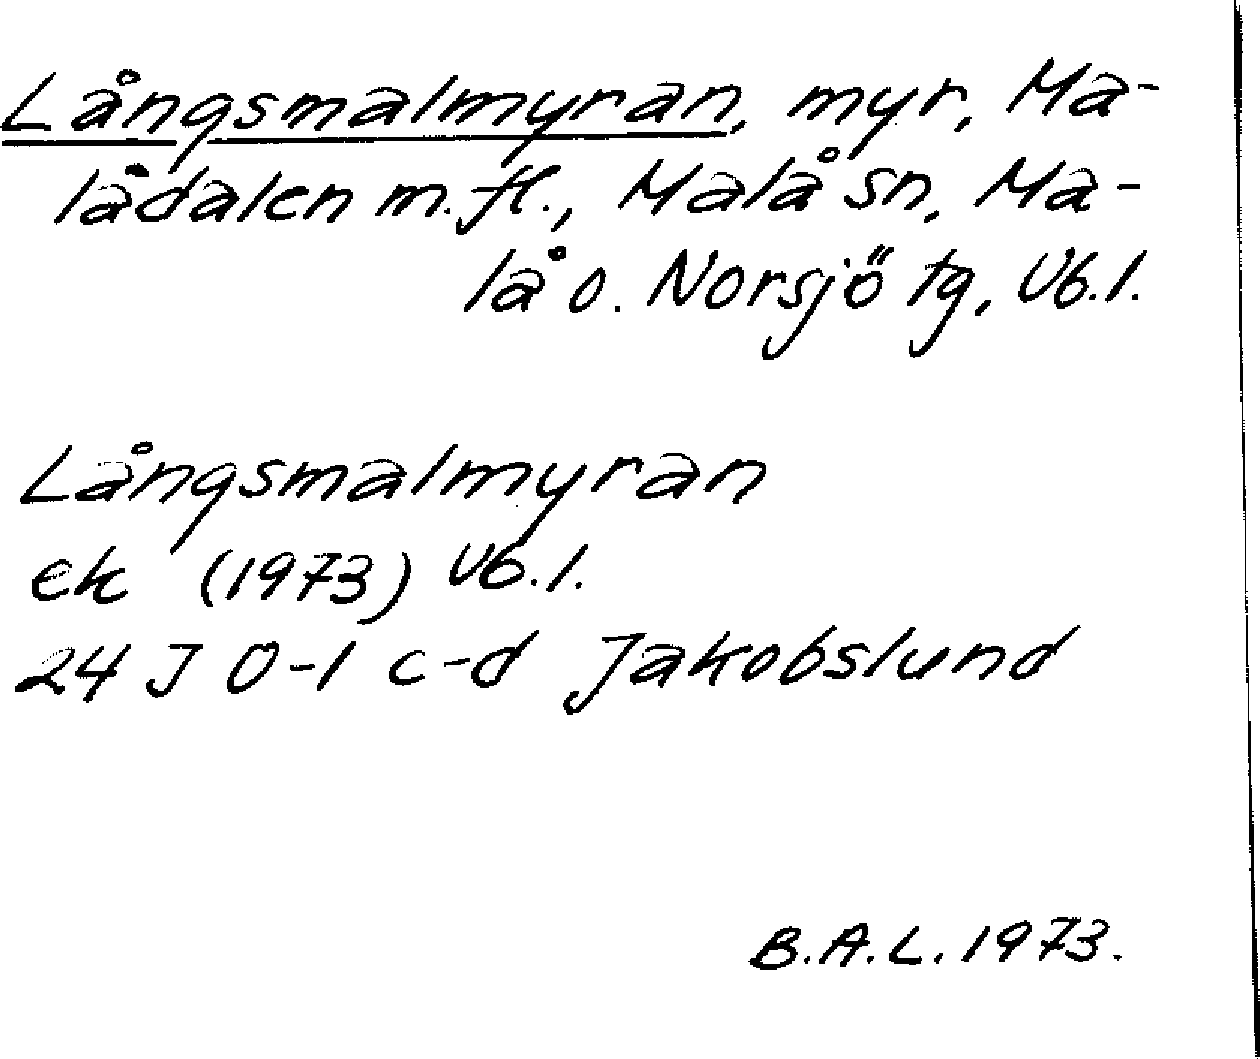 Långsmalmyran, myr, Ma-
lådalen m.fl., Malå sn, Ma-
lå o. Norsjö tg, Vb.l.
Långsmalmyran
ek (1973) Vb.l.
24 J 0-1 c-d Jakobslund
B.A.L. 1973.